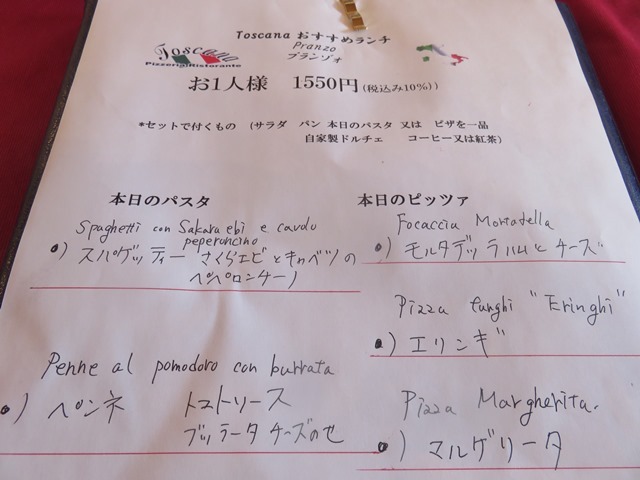 Toscana おすすめランチ
Pranzo
プランゾォ
Toscana
Pizzeria Ristorante
お1人様 1550円(税込み10%))
*セットで付くもの (サラダ パン 本日のパスタ 又は ピザを一品
自家製ドルチェ コーヒー又は紅茶)
本日のパスタ
Spaghetti con Sakura ebi e cavolo
peperoncino
•) スパゲッティー さくらエビとキャベツの
ペペロンチーノ
Penne al pomodoro con burrata
•) ペンネ トマトソース
ブッラータチーズのせ
本日のピッツァ
Focaccia Mortadella
•) モルタデッラハムとチーズ
Pizza funghi "Eringhi"
•) エリンギ
Pizza Margherita.
•) マルゲリータ